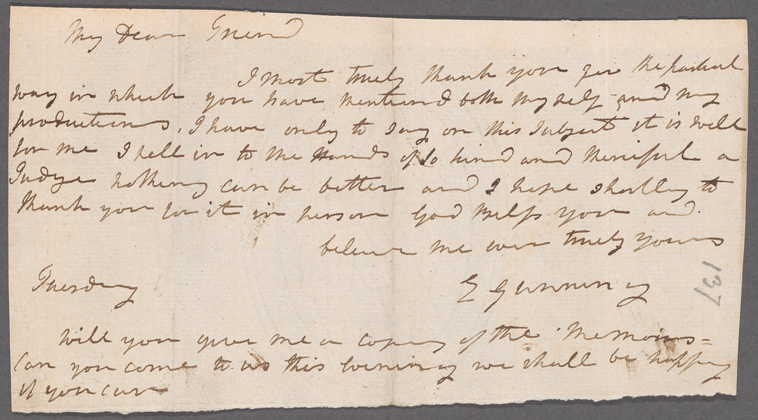 My Dear Friend
I most truly thank you for the partial
way in which you have mentiond both myself and my
productions, I have only to say on this Subject it is well
for me I fell in to the Hands of so kind and Merciful a
Judge nothing can be better and I hope shortly to
thank you for it in person God Helps you and
beleive me ever truly yours
Tuesday E Gunning
137
will you give me a Coping of the Memoirs =
can you come to us this Evening we shall be happy
if you can